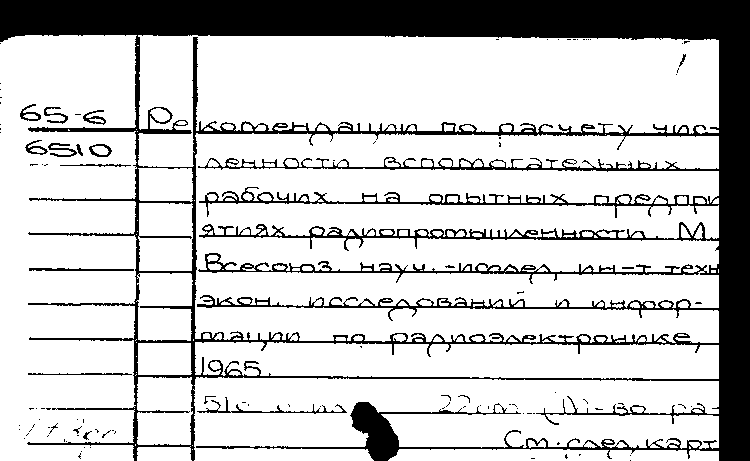 65-6
6510
Рекомендации по расчету чис-
ленности вспомогательных
рабочих на опытных предпри
ятиях радиопромышленности. М.,
Всесоюз. науч.-исслед. ин-т техн
экон. исследований и инфор-
мации по радиоэлектронике,
1965.
51с с ил 22см (М-во ра-
См. след. карт